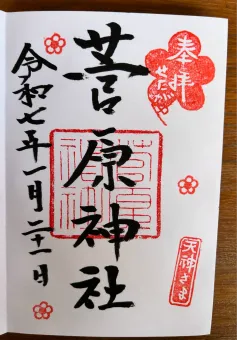 奉拝
天神さま
菅原神社
令和七年一月二十一日